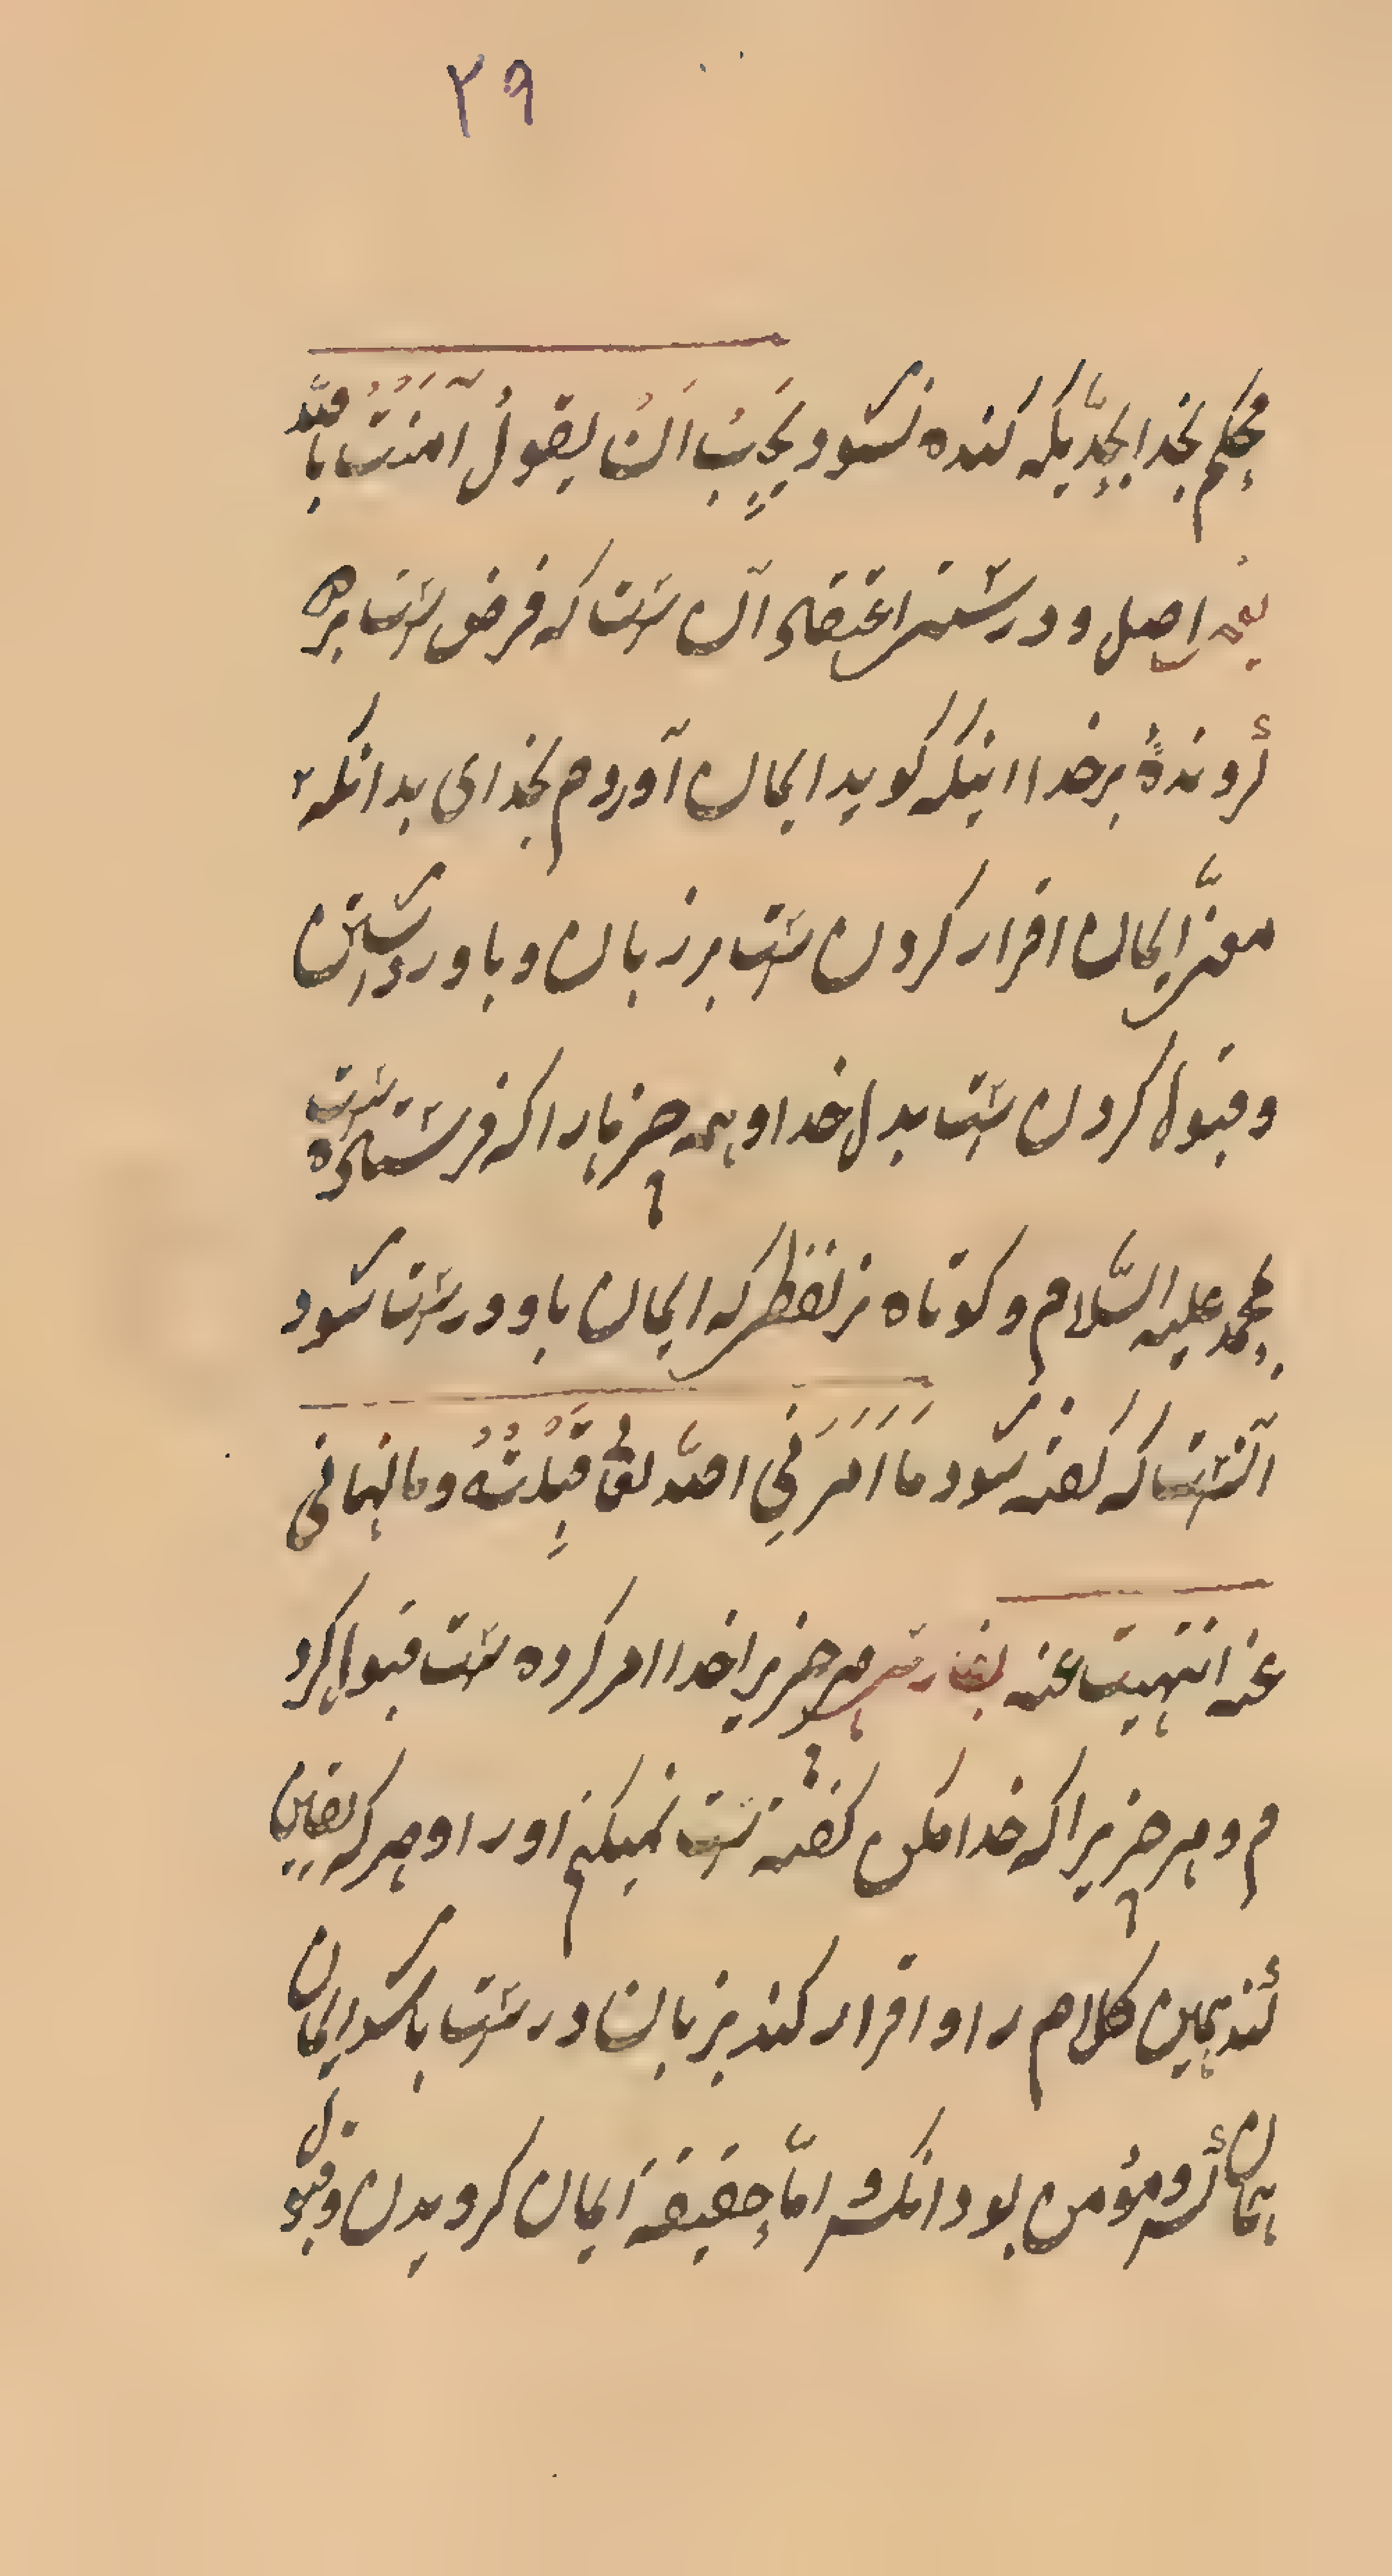 ۲۹
محکم بخدا بحدّیکه کنده نشود یَجِبُ اَنْ یقولُ آمَنْتُ باللّٰه
یعنی اصل و درستی اعتقاد آن ست که فرض ست بر هر
گروندهٔ بر خدا اینکه گوید ایمان آوردم بخدای بدانکه
معنیّ ایمان اقرار کردن ست بر زبان و باور داشتن
و قبول کردن ست بدل خدا و همه چیزها را که فرستاده ست
بمحمد علیه السّلام و کوتاه تر لفظی که ایمان باو درست شود
آنست که گفته شود ما اَمَرَنِی اللّٰه تعالی قَبِلْتُهُ و ما نهانی
عنه انتهیت عنه بفارسی هر چیزیرا خدا امر کرده ست قبول کرد
م و هر چیزیرا که خدا مکن گفته ست نمیکنم اورا و هر که یقین
کند همین کلام را و اقرار کند بزبان درست باشد ایمان
همان کس و مؤمن بود انکس و امّا حقیقة ایمان گرویدن و قبول